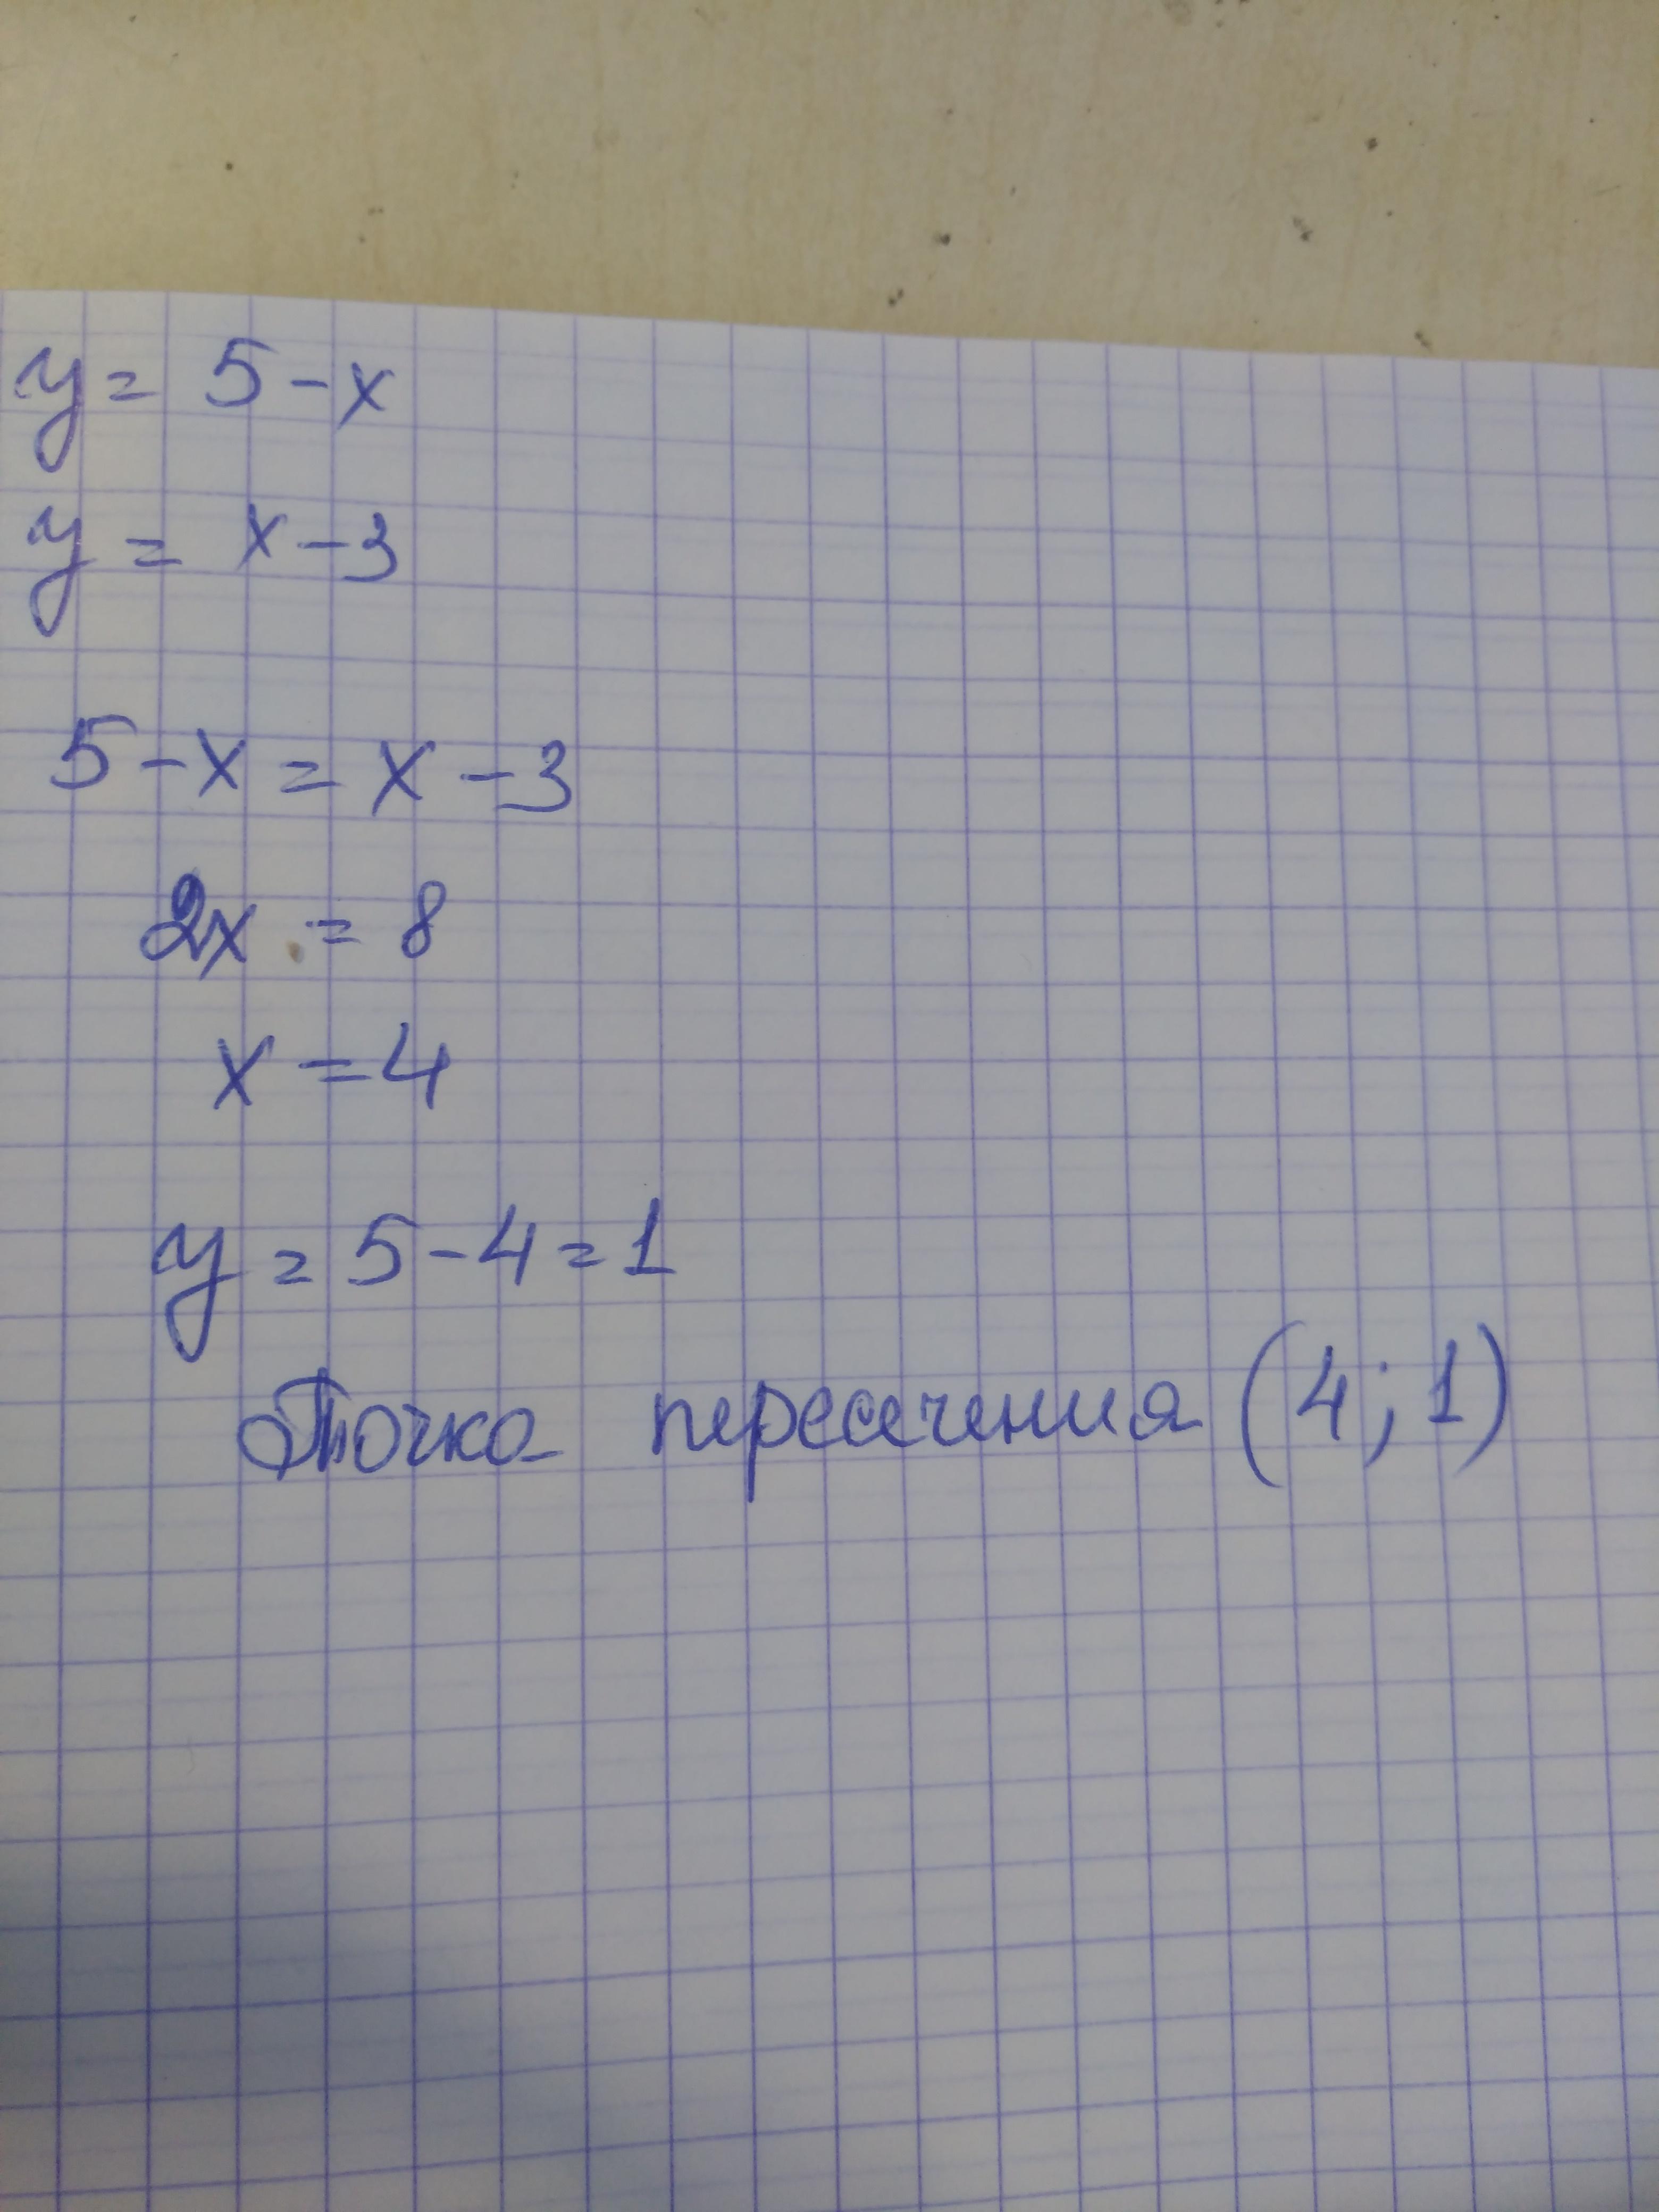 y = 5 - x
y = x - 3
5 - x = x - 3
2x = 8
x = 4
y = 5 - 4 = 1
Точка пересечения (4; 1)